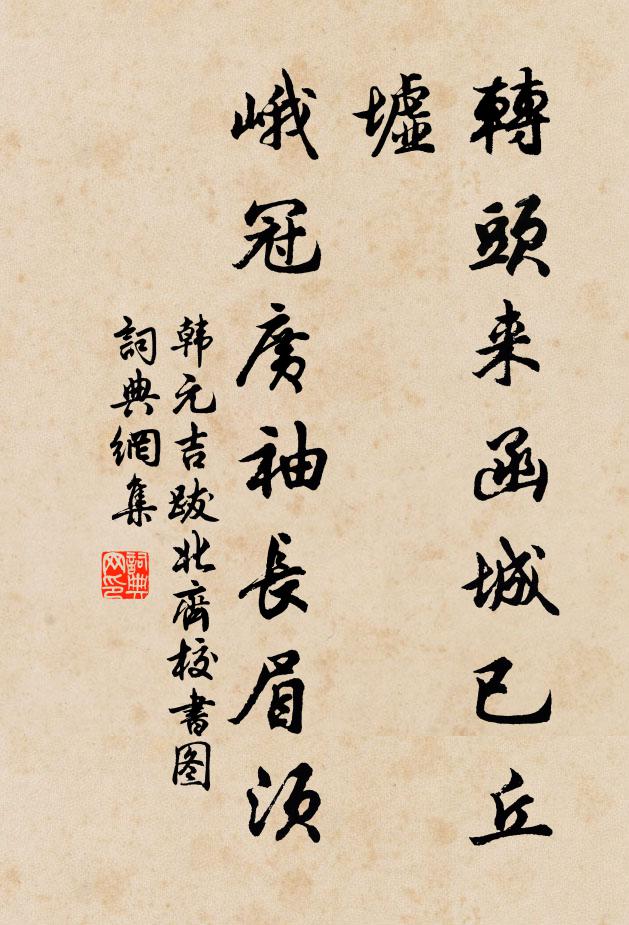 轉頭来函城已丘
墟
峨冠廣袖長眉須
韩元吉跋北齊校書图
詞典網集
詞典网印